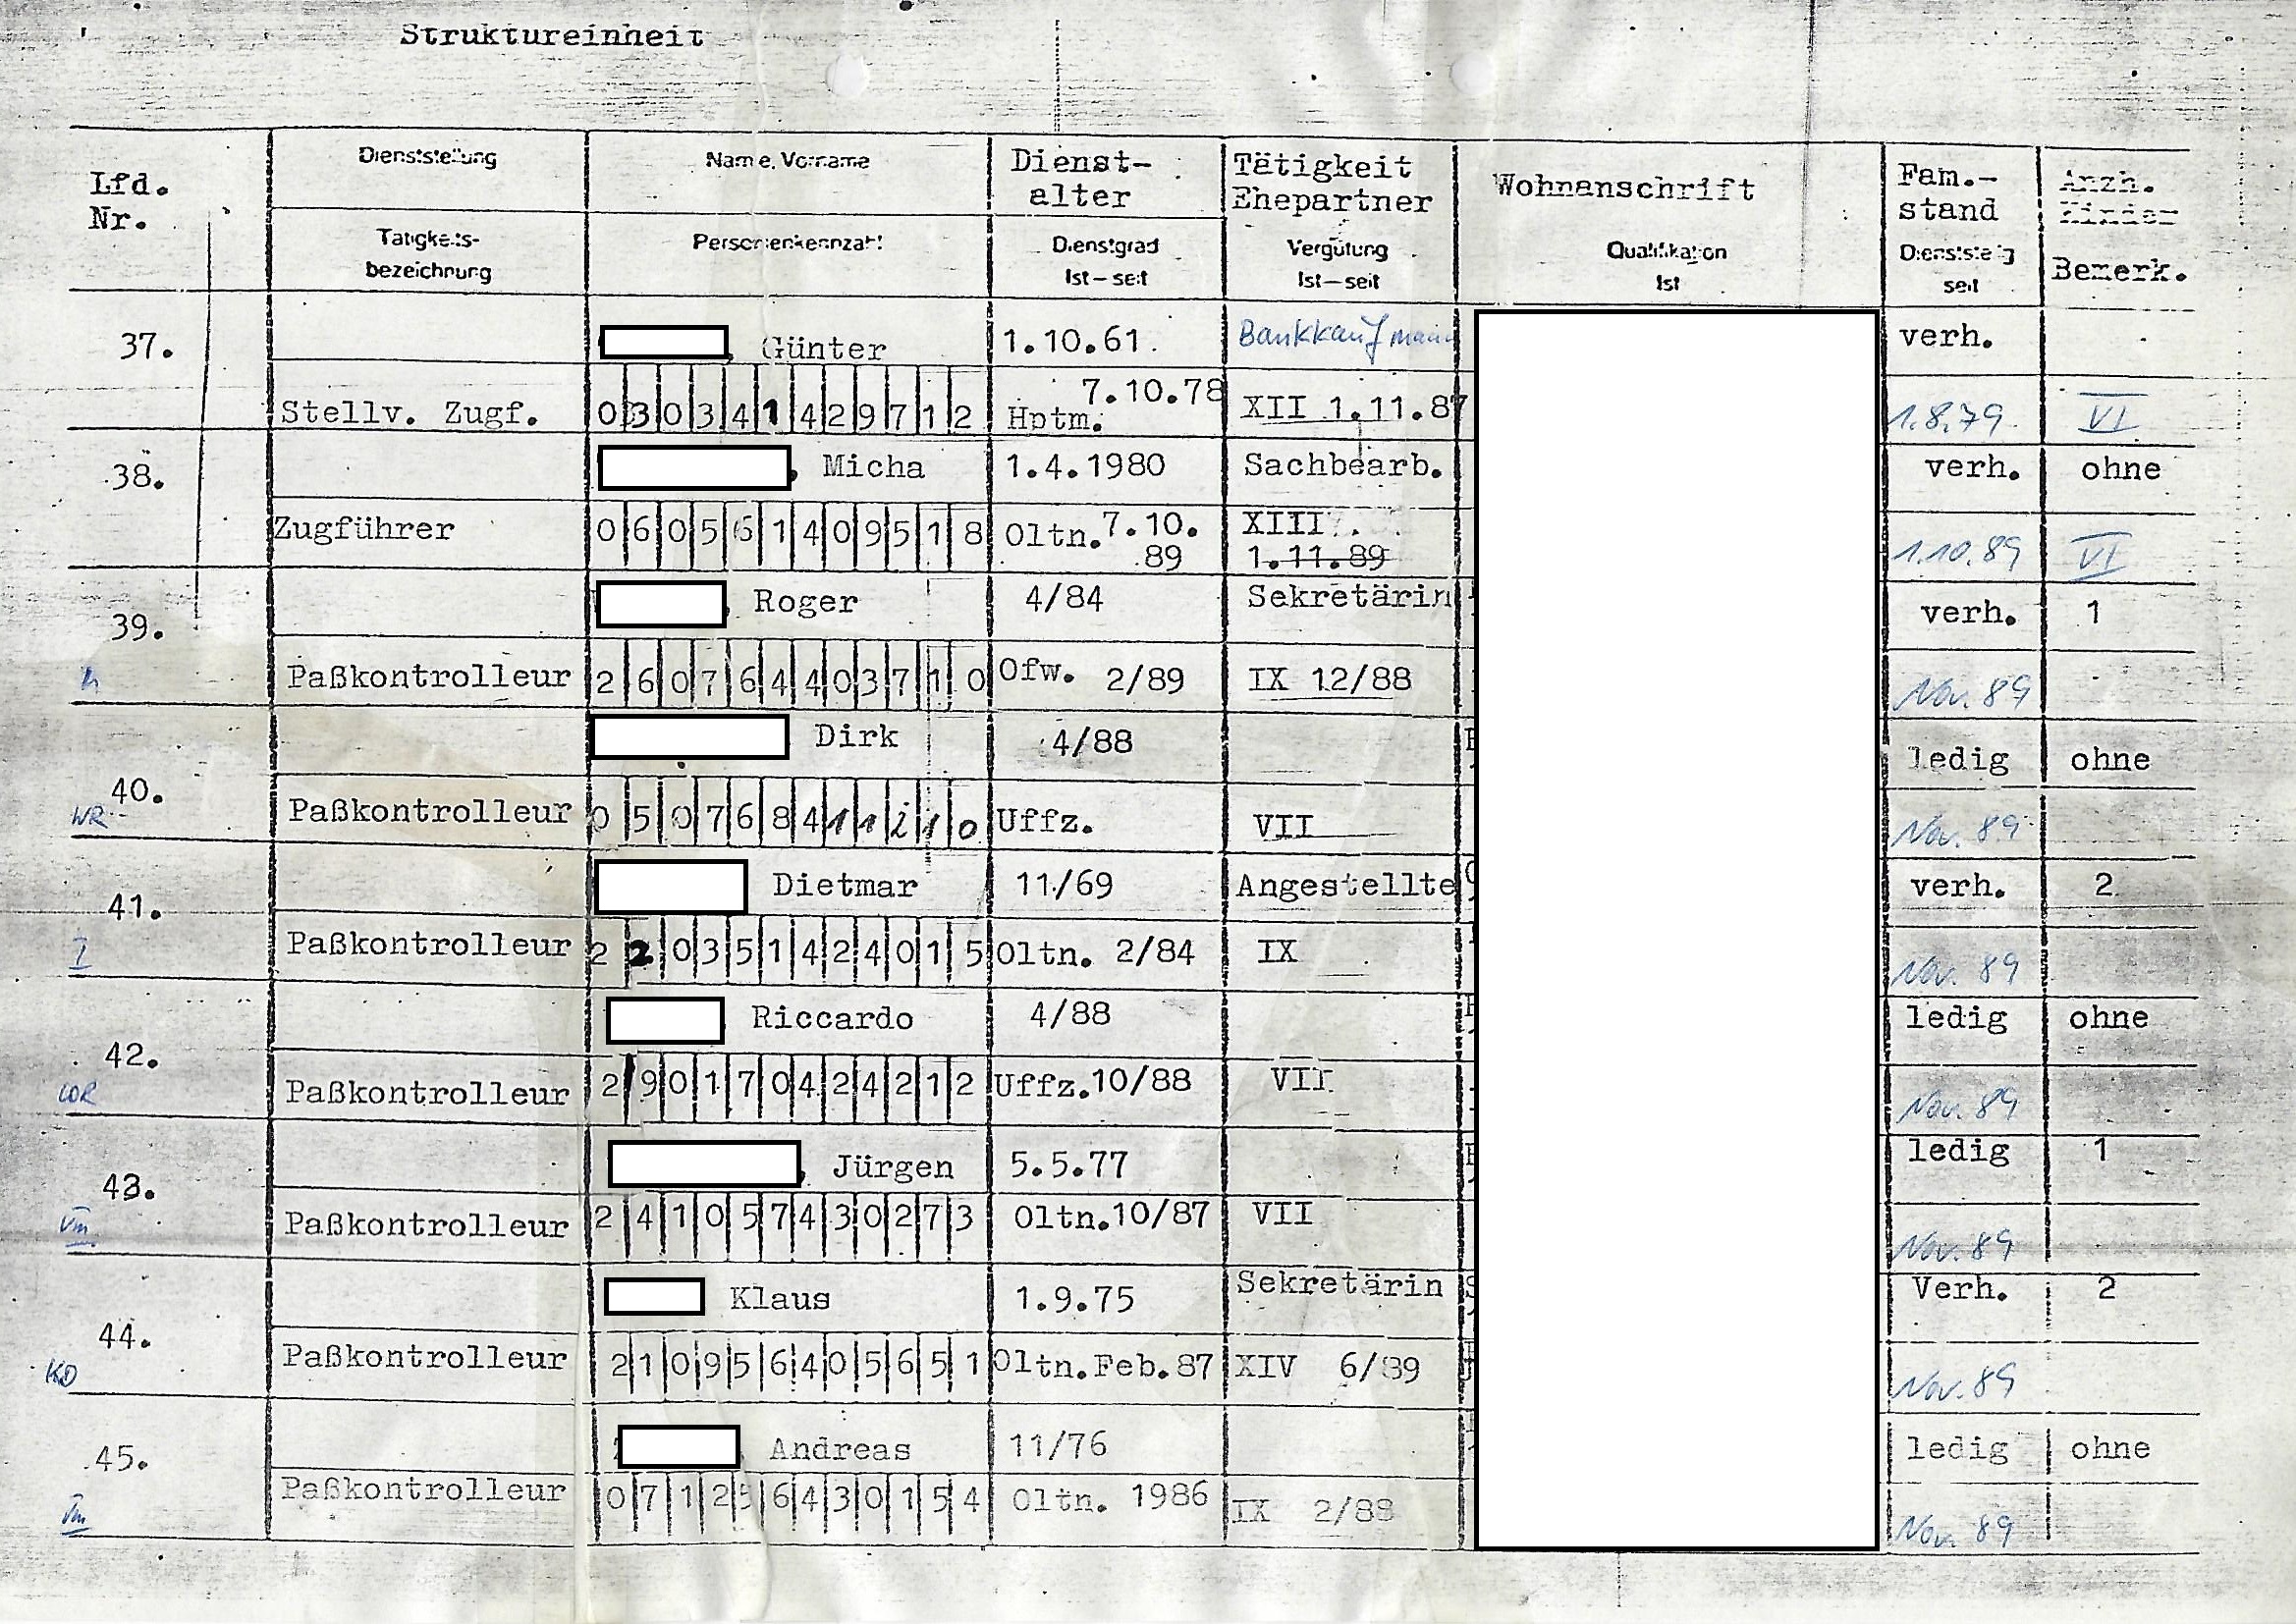 Struktureinheit
Lfd. Nr.
Dienststellung
Tätigkeits-
bezeichnung
Name, Vorname
Personenkennzahl
Dienst-
alter
Dienstgrad
Ist – seit
Tätigkeit
Ehepartner
Vergütung
Ist – seit
Wohnanschrift
Qualifikation
Ist
Fam.-
stand
Dienststellg
seit
Anzh.
Kinder
Bemerk.
37. Günter 1.10.61. Bankkaufmann verh.
Stellv. Zugf. 030341429712 Hptm. 7.10.78 XII 1.11.87 1.8.79 VI
38. Micha 1.4.1980 Sachbearb. verh. ohne
Zugführer 060561409518 Oltn. 7.10. 89 XIII 1.11.89 1.10.89 VI
39. Roger 4/84 Sekretärin verh. 1
Paßkontrolleur 260764403710 Ofw. 2/89 IX 12/88 Nov. 89
40. Dirk 4/88 ledig ohne
WR Paßkontrolleur Uffz. VII Nov. 89
41. Dietmar 11/69 Angestellte verh. 2
I Paßkontrolleur 220351424015 Oltn. 2/84 IX Nov. 89
42. Riccardo 4/88 ledig ohne
Paßkontrolleur 290170424212 Uffz. 10/88 VII Nov. 89
43. Jürgen 5.5.77 ledig 1
Paßkontrolleur 241057430273 Oltn. 10/87 VII Nov. 89
44. Klaus 1.9.75 Sekretärin Verh. 2
KD Paßkontrolleur 210956405651 Oltn. Feb. 87 XIV 6/89 Nov. 89
45. Andreas 11/76 ledig ohne
Paßkontrolleur 071256430154 Oltn. 1986 IX 2/88 Nov. 89